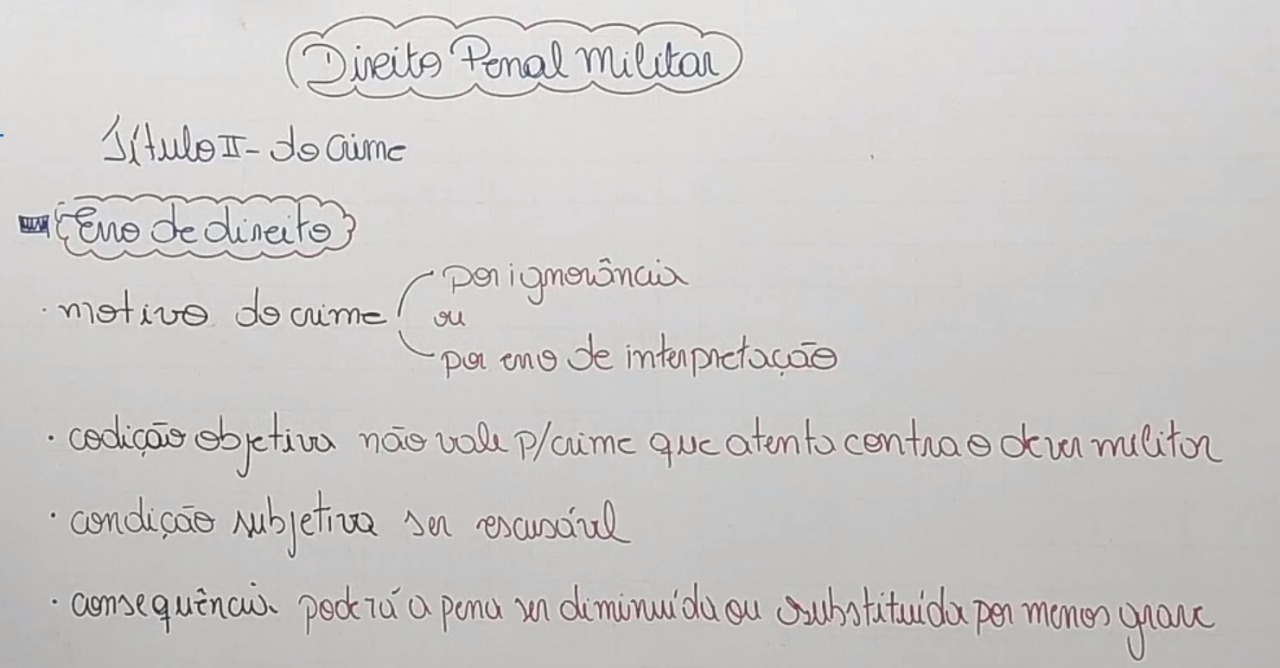 Direito Penal Militar
Título II - do crime
Erro de direito
· motivo do crime
por ignorância
ou
por erro de interpretação
· codição objetiva não vale p/ crime que atenta contra o dever militar
· condição subjetiva ser escusável
· consequência poderá a pena ser diminuída ou substituída por menos grave